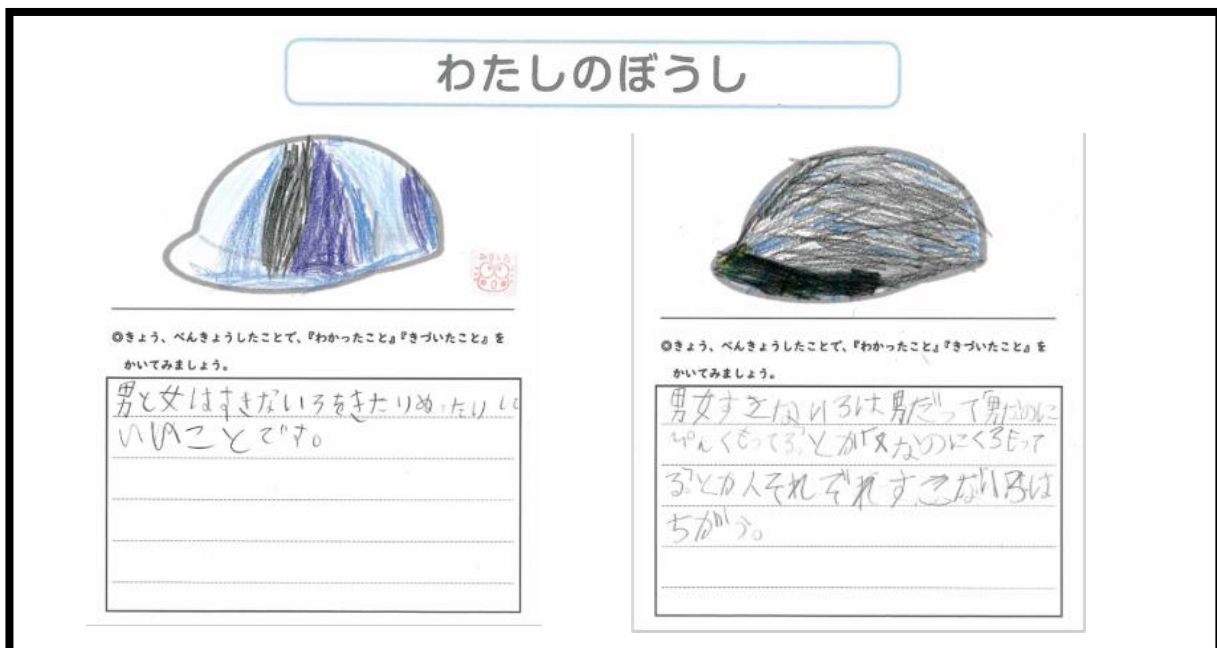 わたしのぼうし
◎きょう、べんきょうしたことで、『わかったこと』『きづいたこと』を
かいてみましょう。
男と女はすきないろをきたりぬったりして
いいことです。
◎きょう、べんきょうしたことで、『わかったこと』『きづいたこと』を
かいてみましょう。
男女すきないろは男だって「男なのに
ぴんくもってる」とか「女なのにくろもって
る」とか人それぞれすきないろは
ちがう。